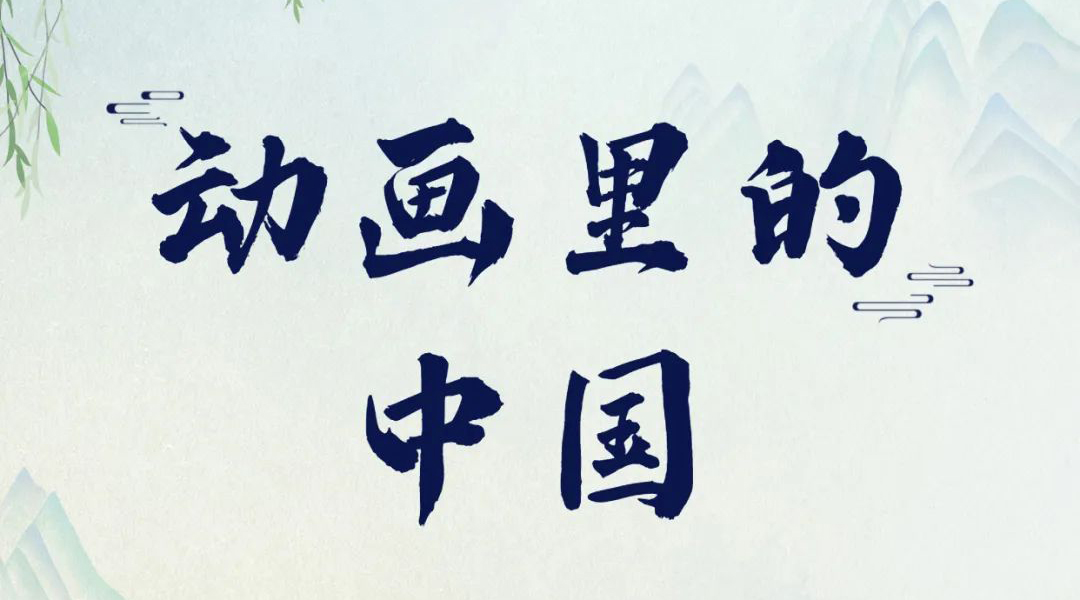 动画里的
中国